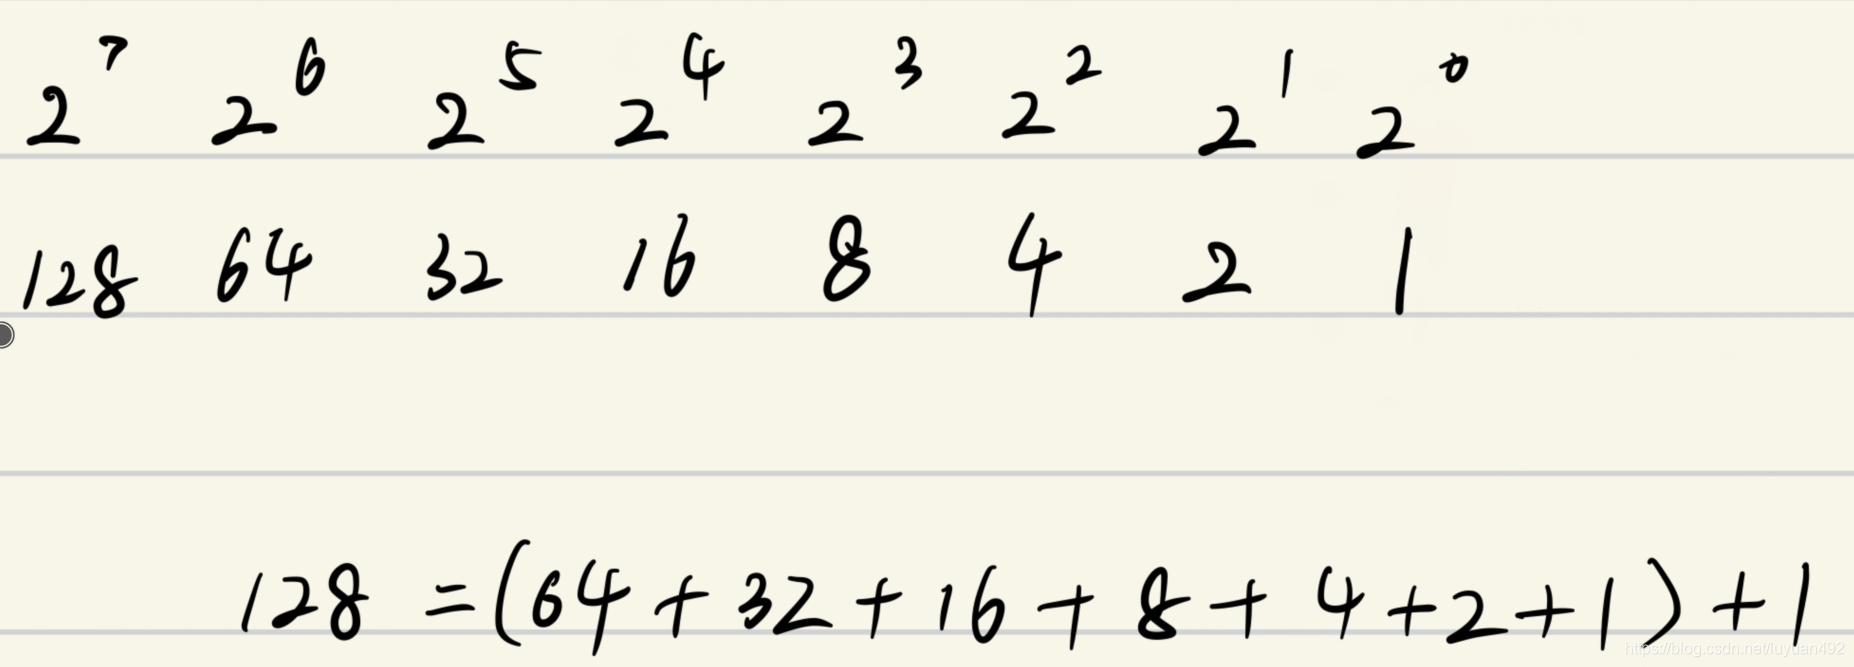 2⁷ 2⁶ 2⁵ 2⁴ 2³ 2² 2¹ 2⁰
128 64 32 16 8 4 2 1
128 = (64 + 32 + 16 + 8 + 4 + 2 + 1) + 1
https://blog.csdn.net/luyuan492